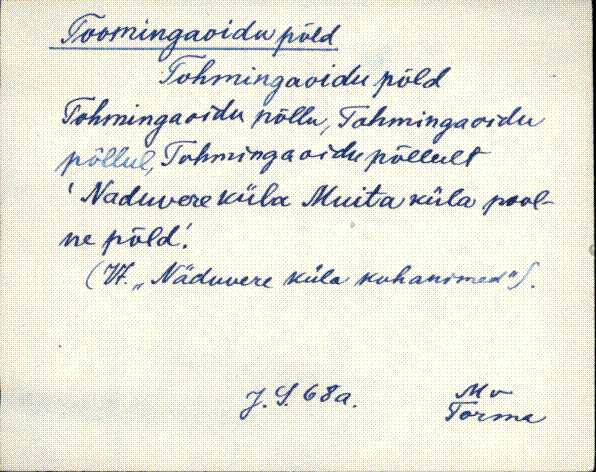 Toomingaoidu põld
Tohmingaoidu põld
Tohmingaoidu põllu, Tohmingaoidu
põllul, Tohmingaoidu põllult
'Naduvere küla Muita küla pool-
ne põld'.
(Vt. „Näduvere küla kohanimed").
J. S. 68a.
Mv
Torma